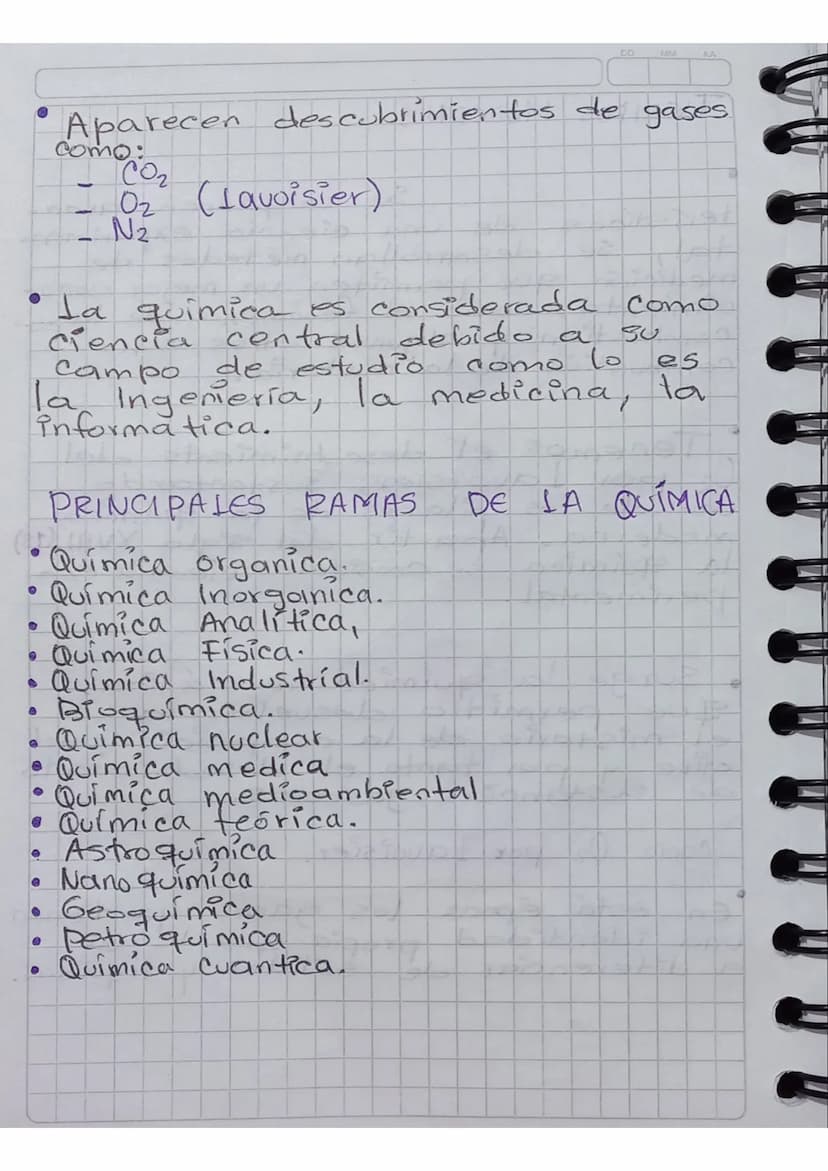 DD MM AA
• Aparecen descubrimientos de gases
como:
- CO₂
- O₂ (Lavoisier)
- N₂
• La química es considerada como
ciencia central debido a su
campo de estudio como lo es
la Ingeniería, la medicina, la
informática.
PRINCIPALES RAMAS DE LA QUÍMICA
• Química organica.
• Química Inorganica.
• Química Analítica,
• Química Física.
• Química Industrial.
• Bioquímica.
• Química nuclear
• Química medica
• Química medioambiental
• Química teórica.
• Astroquímica
• Nanoquímica
• Geoquímica
• petroquímica
• Química cuantica.